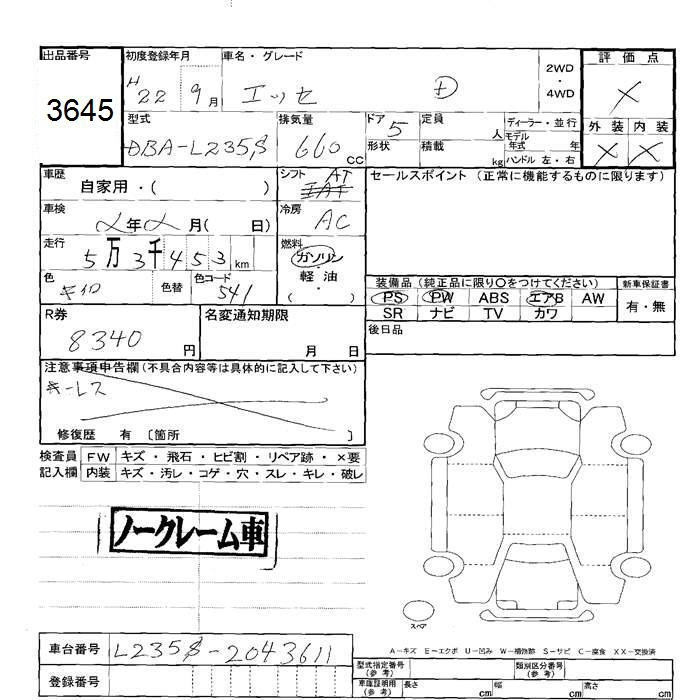 出品番号 3645
初度登録年月 H 22 9月
車名・グレード エッセ D
2WD・4WD
評価点 X
外装 X 内装 X
型式 DBA-L235S
排気量 660cc
ドア 5
形状
定員 人
積載 kg
ディーラー・並行
モデル年式 年
ハンドル 左・右
車歴 自家用・( )
シフト AT
セールスポイント (正常に機能するものに限ります)
車検 年 月( 日)
冷房 AC
走行 5万3千453km
燃料 ガソリン・軽油・( )
色 キイロ 色替
色コード 541
装備品 (純正品に限り○をつけてください)
PS PW ABS エアB AW
SR ナビ TV カワ
新車保証書 有・無
後日品
R券 8340円
名変通知期限 月 日
注意事項申告欄(不具合内容等は具体的に記入して下さい)
キーレス
修復歴 有 〔箇所 〕
検査員記入欄
FW キズ・飛石・ヒビ割・リペア跡・×要
内装 キズ・汚レ・コゲ・穴・スレ・キレ・破レ
ノークレーム車
スペア
A-キズ E-エクボ U-凹み W-補修跡 S-サビ C-腐食 XX-交換済
車台番号 L235S-2043611
登録番号
型式指定番号(参考)
類別区分番号(参考)
車庫証明用(参考) 長さ cm 幅 cm 高さ cm